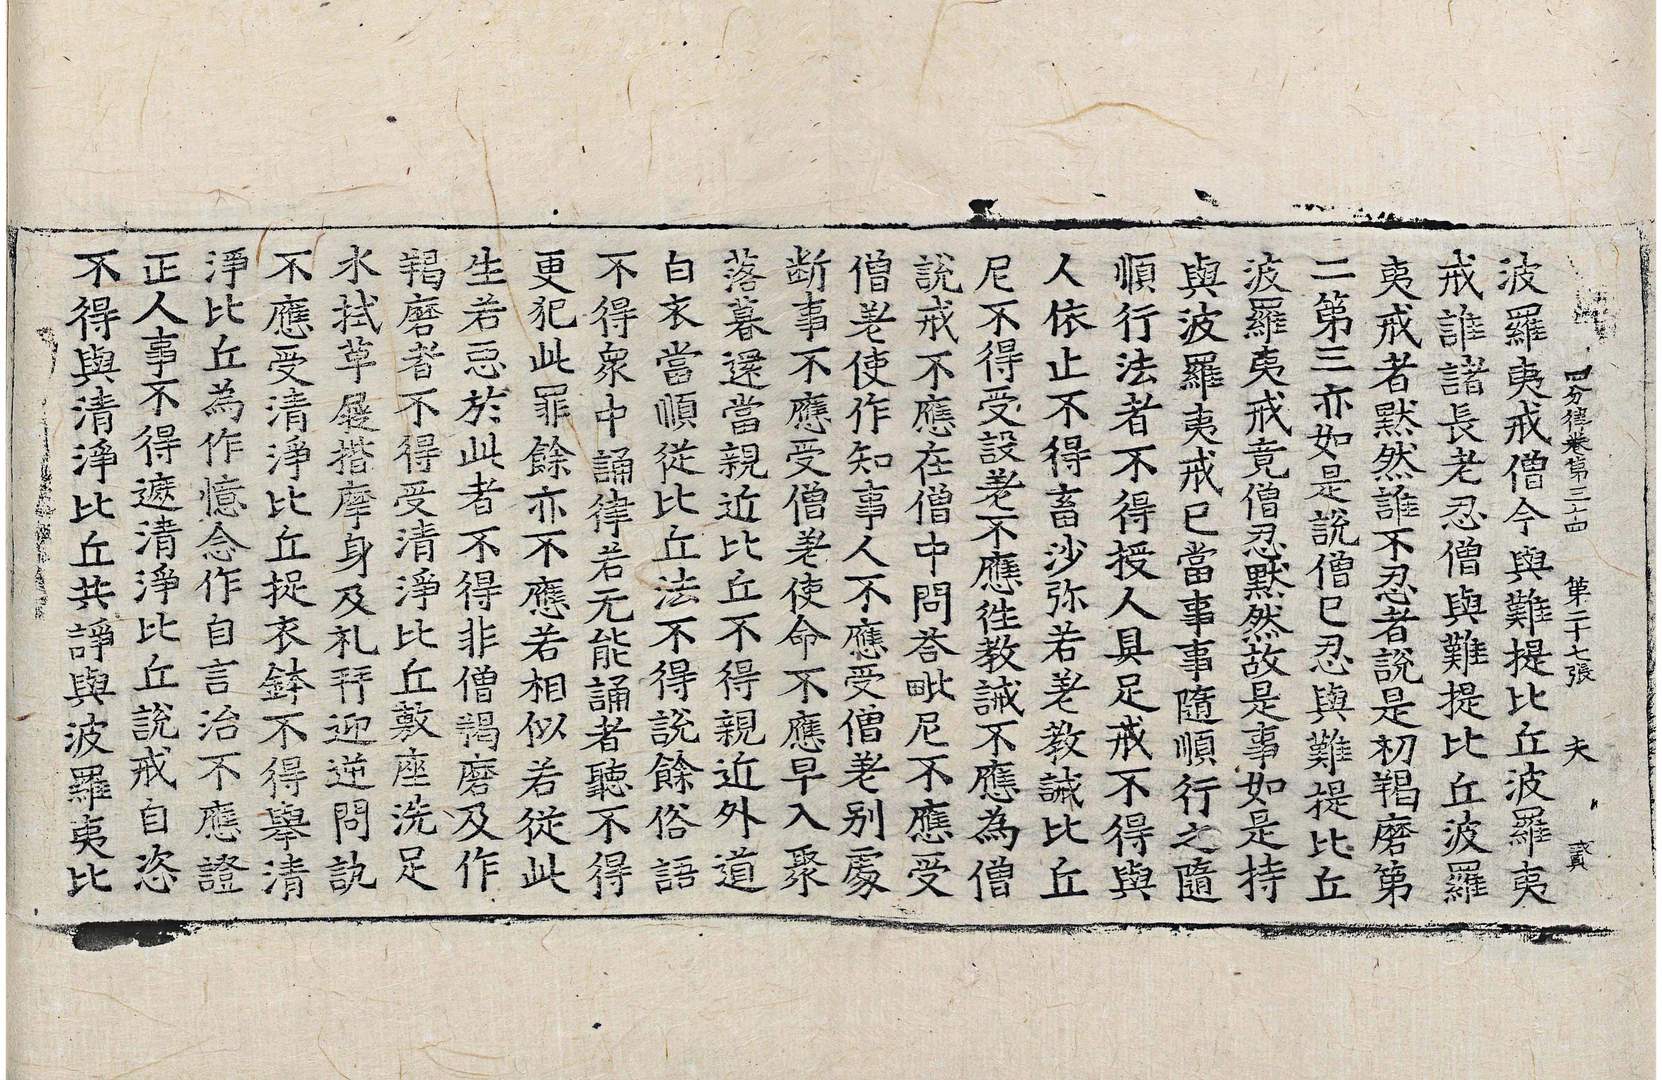 四分律卷第三十四 第二十七張 夫
波羅夷戒僧今與難提比丘波羅夷
戒誰諸長老忍僧與難提比丘波羅
夷戒者默然誰不忍者說是初羯磨第
二第三亦如是說僧已忍與難提比丘
波羅夷戒竟僧忍默然故是事如是持
與波羅夷戒已當事事隨順行之隨
順行法者不得授人具足戒不得與
人依止不得畜沙弥若差教誡比丘
尼不得受設差不應往教誡不應為僧
說戒不應在僧中問荅毗尼不應受
僧差使作知事人不應受僧差別處
斷事不應受僧差使命不應早入聚
落暮還當親近比丘不得親近外道
白衣當順從比丘法不得說餘俗語
不得衆中誦律若无能誦者聽不得
更犯此罪餘亦不應若相似若從此
生若惡於此者不得非僧羯磨及作
羯磨者不得受清淨比丘敷座洗足
水拭革屣揩摩身及礼拜迎逆問訊
不應受清淨比丘捉衣鉢不得舉清
淨比丘為作憶念作自言治不應證
正人事不得遮清淨比丘說戒自恣
不得與清淨比丘共諍與波羅夷比